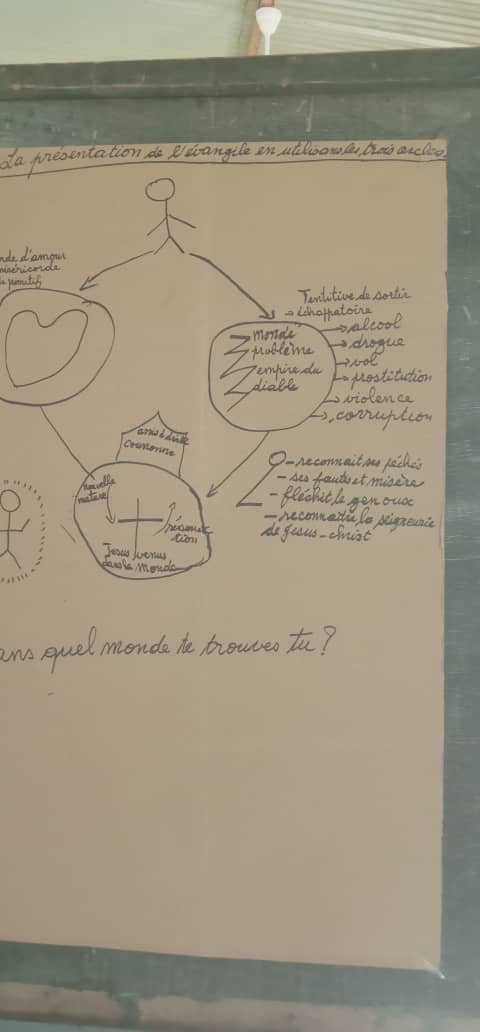 La présentation de l'évangile en utilisant les trois cercles
nde d'amour
miséricorde
primitif
Tentitive de sortir
échappatoire
alcool
drogue
vol
prostitution
violence
corruption
monde
problème
empire du
diable
couronne
nouvelle
nature
résurrec
tion
Jesus venus
dans le monde
-reconnait ses péchés
-ses fautes et misère
-fléchit le genoux
-reconnaitre la seigneurie
de Jesus-christ
ans quel monde te trouves tu?